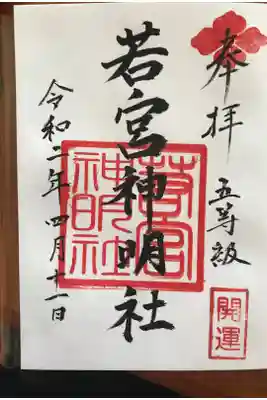 奉拝
五等級
開運
若宮神明社
若宮神明社
令和二年四月十一日